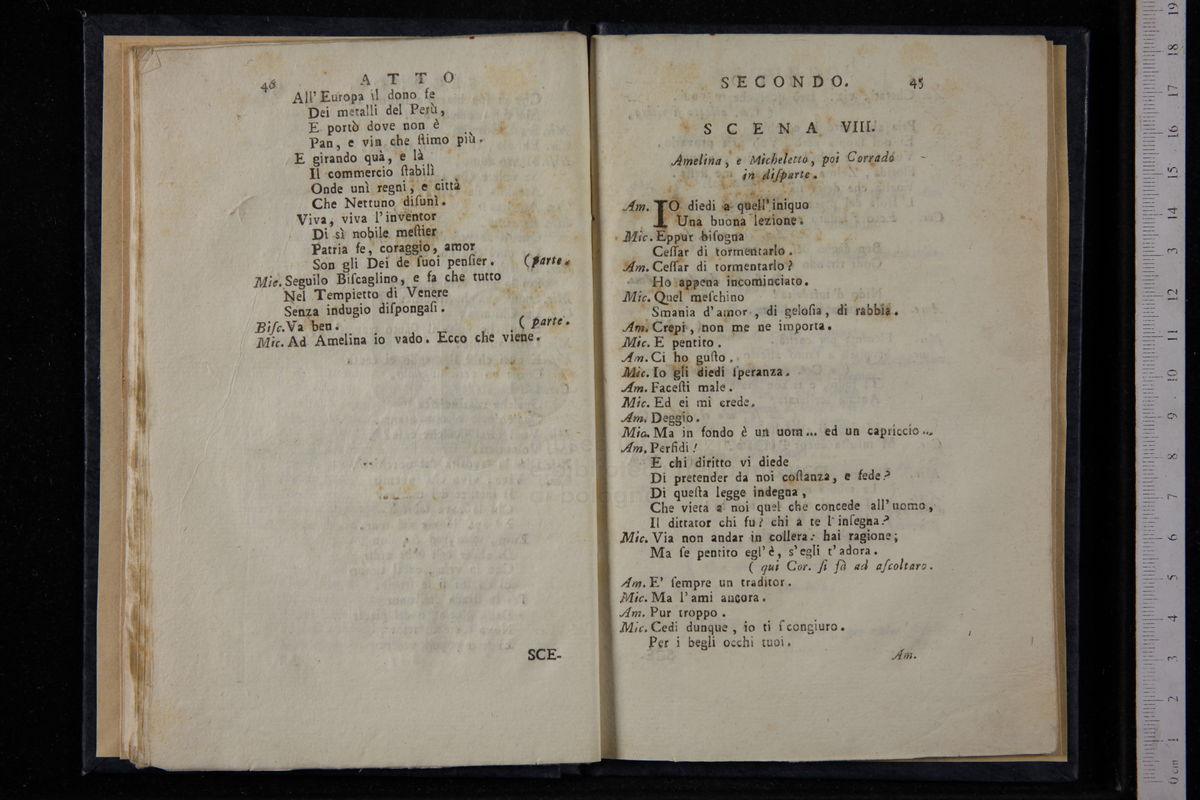 46 ATTO
All' Europa il dono fe
Dei metalli del Perù,
E portò dove non è
Pan, e vin che ſtimo più.
E girando quà, e là
Il commercio ſtabilì
Onde unì regni, e città
Che Nettuno diſunì.
Viva, viva l'inventor
Di sì nobile meſtier
Patria fe, coraggio, amor
Son gli Dei de ſuoi penſier. (parte.
Mic. Seguilo Biſcaglino, e fa che tutto
Nel Tempietto di Venere
Senza indugio diſpongaſi.
Biſc. Va ben. (parte.
Mic. Ad Amelina io vado. Ecco che viene.
SCE-
SECONDO. 45
SCENA VIII.
Amelina, e Micheletto, poi Corrado
in diſparte.
Am. IO diedi a quell'iniquo
Una buona lezione.
Mic. Eppur biſogna
Ceſſar di tormentarlo.
Am. Ceſſar di tormentarlo?
Ho appena incominciato.
Mic. Quel meſchino
Smania d'amor, di geloſia, di rabbia.
Am. Crepi, non me ne importa.
Mic. E pentito.
Am. Ci ho guſto.
Mic. Io gli diedi ſperanza.
Am. Faceſti male.
Mic. Ed ei mi crede.
Am. Deggio.
Mic. Ma in fondo è un uom... ed un capriccio...
Am. Perfidi!
E chi diritto vi diede
Di pretender da noi coſtanza, e fede?
Di queſta legge indegna,
Che vieta a noi quel che concede all'uomo,
Il dittator chi fu? chi a te l'inſegna?
Mic. Via non andar in collera: hai ragione;
Ma ſe pentito egl'è, s'egli t'adora.
( qui Cor. ſi fà ad aſcoltaro.
Am. E' ſempre un traditor.
Mic. Ma l'ami ancora.
Am. Pur troppo.
Mic. Cedi dunque, io ti ſcongiuro.
Per i begli occhi tuoi.
Am.